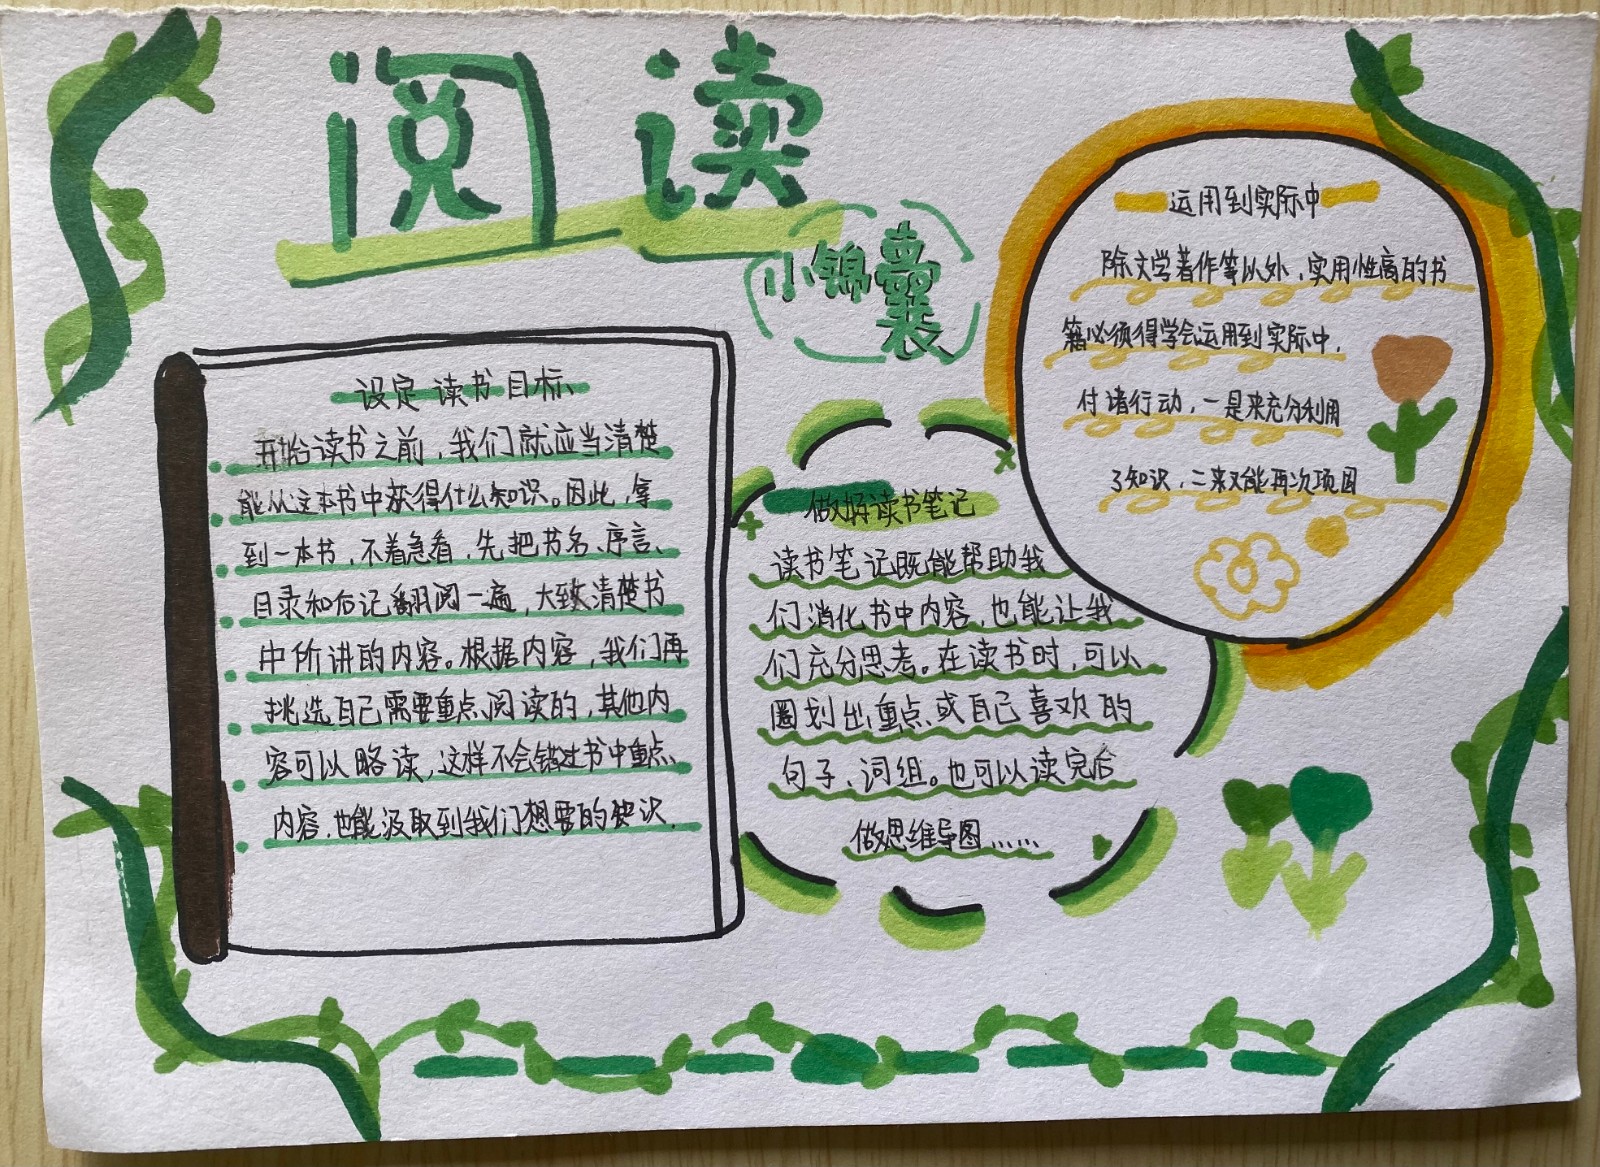 阅读
小锦囊
设定读书目标
开始读书之前，我们就应当清楚
能从这本书中获得什么知识。因此，拿
到一本书，不着急看，先把书名、序言、
目录和后记翻阅一遍，大致清楚书
中所讲的内容。根据内容，我们再
挑选自己需要重点阅读的，其他内
容可以略读，这样不会错过书中重点
内容，也能汲取到我们想要的知识.
做好读书笔记
读书笔记既能帮助我
们消化书中内容，也能让我
们充分思考。在读书时，可以
圈划出重点或自己喜欢的
句子、词组。也可以读完后
做思维导图……
运用到实际中
除文学著作等以外，实用性高的书
籍必须得学会运用到实际中，
付诸行动，一是来充分利用
了知识，二来又能再次巩固